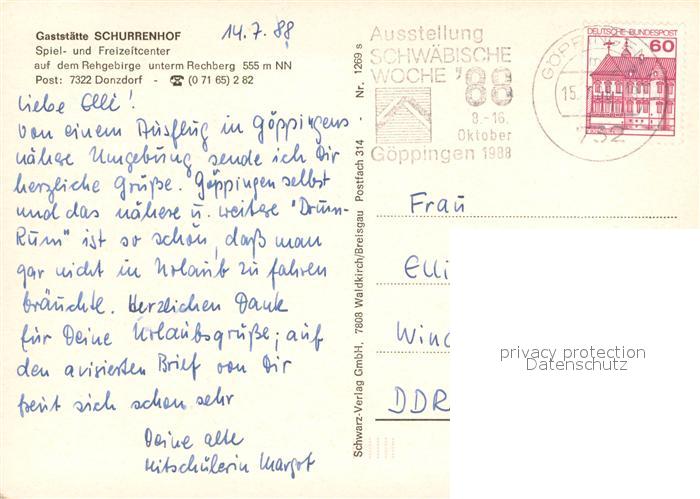 Gaststätte SCHURRENHOF
14.7.88
Spiel- und Freizeitcenter
auf dem Rehgebirge unterm Rechberg 555 m NN
Post: 7322 Donzdorf - ☎ (0 71 65) 2 82
Liebe Elli!
Von einem Ausflug in Göppingens
nähere Umgebung sende ich Dir
herzliche Grüße. Göppingen selbst
und das nähere u. weitere "Drum-
Rum" ist so schön, daß man
gar nicht in Urlaub zu fahren
bräuchte. Herzlichen Dank
für Deine Urlaubsgrüße; auf
den avisierten Brief von Dir
freut sich schon sehr
Deine alte
Mitschülerin Margot
Schwarz-Verlag GmbH, 7808 Waldkirch/Breisgau Postfach 314 - Nr. 1269 s
Ausstellung
SCHWÄBISCHE
WOCHE '88
8.-16.
Oktober
Göppingen 1988
GÖPPINGEN
15.
732
DEUTSCHE BUNDESPOST
60
Frau
Elli
DDR
privacy protection
Datenschutz